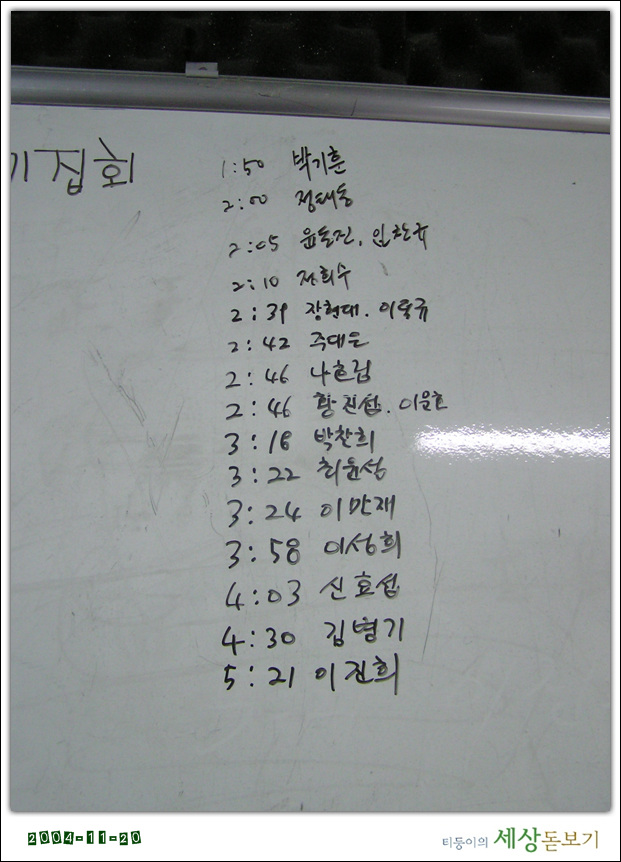 기집회
1:50 박기훈
2:00 정태동
2:05 윤동진, 임찬규
2:10 전희수
2:39 장현대. 이동규
2:42 주대은
2:46 나흐림
2:46 황진섭. 이윤호
3:18 박찬희
3:22 최윤성
3:24 이만재
3:58 이성희
4:03 신효섭
4:30 김병기
5:21 이진희
2004-11-20
티둥이의 세상돋보기